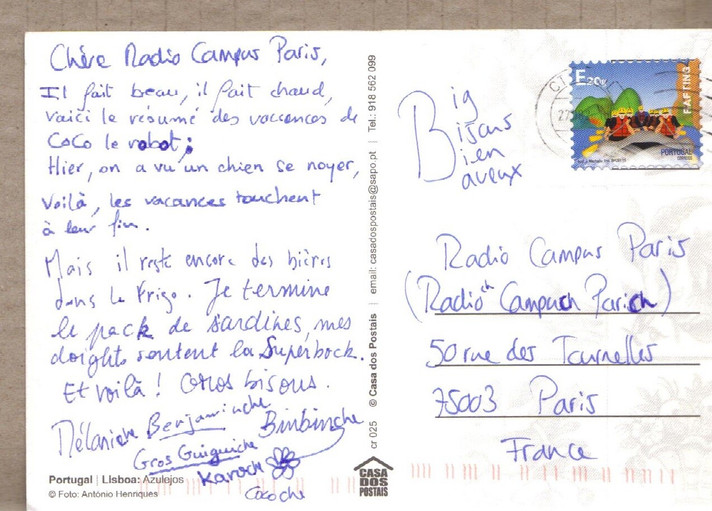 Chère Radio Campus Paris,
Il fait beau, il fait chaud,
voici le résumé des vacances de
CoCo le robot:
Hier, on a vu un chien se noyer,
Voilà, les vacances touchent
à leur fin.
Mais il reste encore des bières
dans le frigo. Je termine
le pack de sardines, mes
doights sentent la Superbock.
Et voilà ! Gros bisous.
Mélaniche Benjaminche
Binbinche
Gros Guiguiche
Karoche
Cocoche
Portugal | Lisboa: Azulejos
© Foto: António Henriques
cr 025 © Casa dos Postais | email: casadospostais@sapo.pt | Tel.: 918 562 099
CASA
DOS
POSTAIS
Big
Bisous
Bien
baveux
E20g
RAFTING
PORTUGAL
Radio Campus Paris
(Radioch Campuch Parich)
50 rue des Tournelles
75003 Paris
France